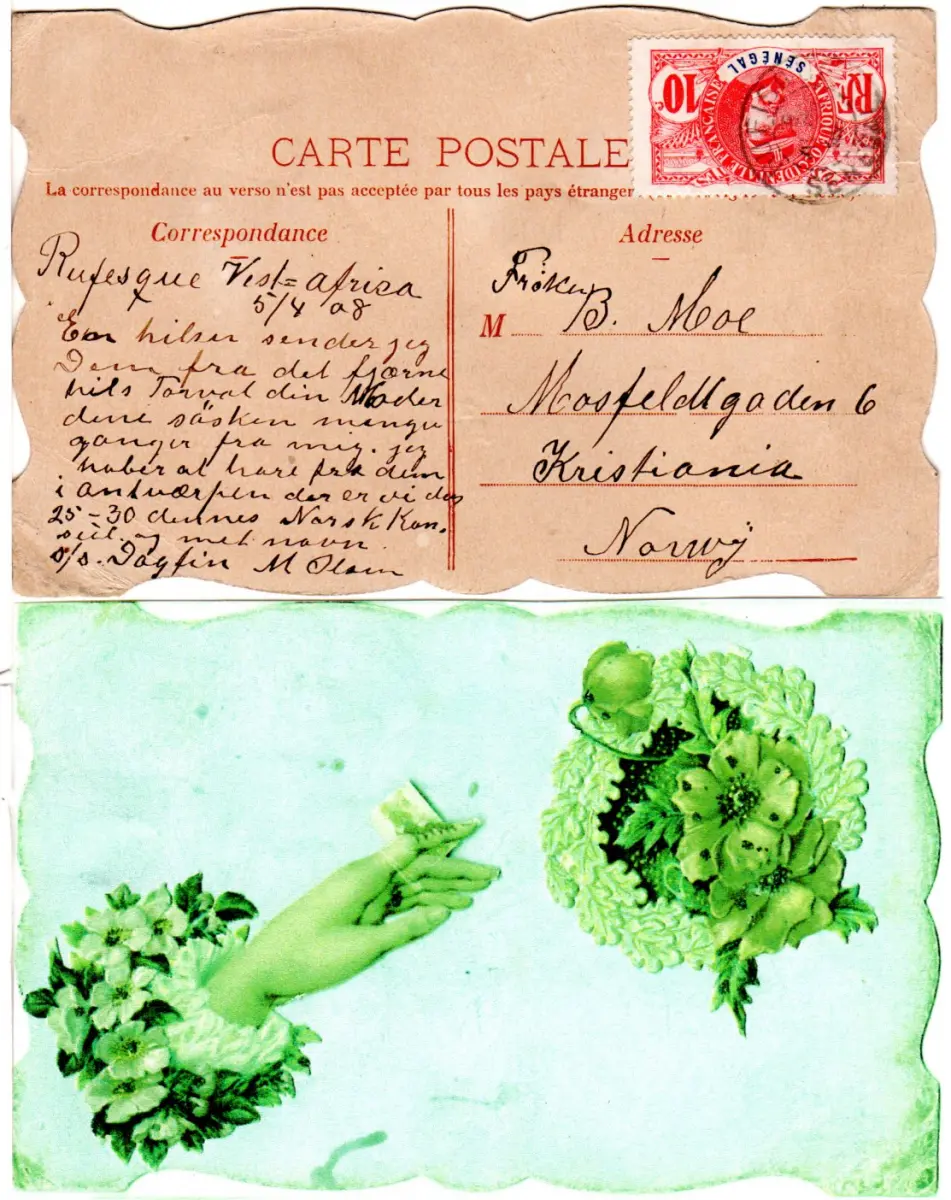 SÉNÉGAL
10
RF
AFRIQUE OCCIDENTALE FRANÇAISE
CARTE POSTALE
La correspondance au verso n'est pas acceptée par tous les pays étranger
Correspondance
Rufesque Vest=africa
5/4 08
En hilsen sender jeg
Dem fra det fjærne
hils Torval din Moder
dine säsken mange
ganger fra mig. jeg
haber at høre fra dem
i antwærpen der er vi das
25-30 dennes Norsk Kon.
seil. og met navn
s/s. Dagfin M Olsen
Adresse
Frøken
M B. Moe
Mosfeldtgaden 6
Kristiania
Norwÿ